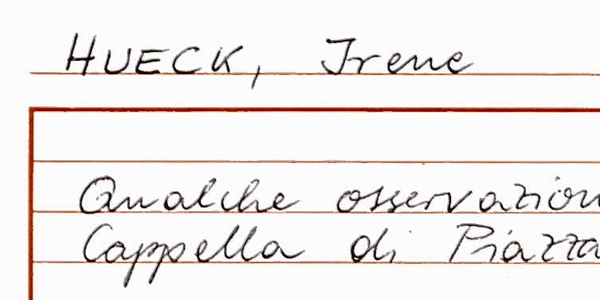 HUECK, Irene
Qualche osservazion
Cappella di Piazza